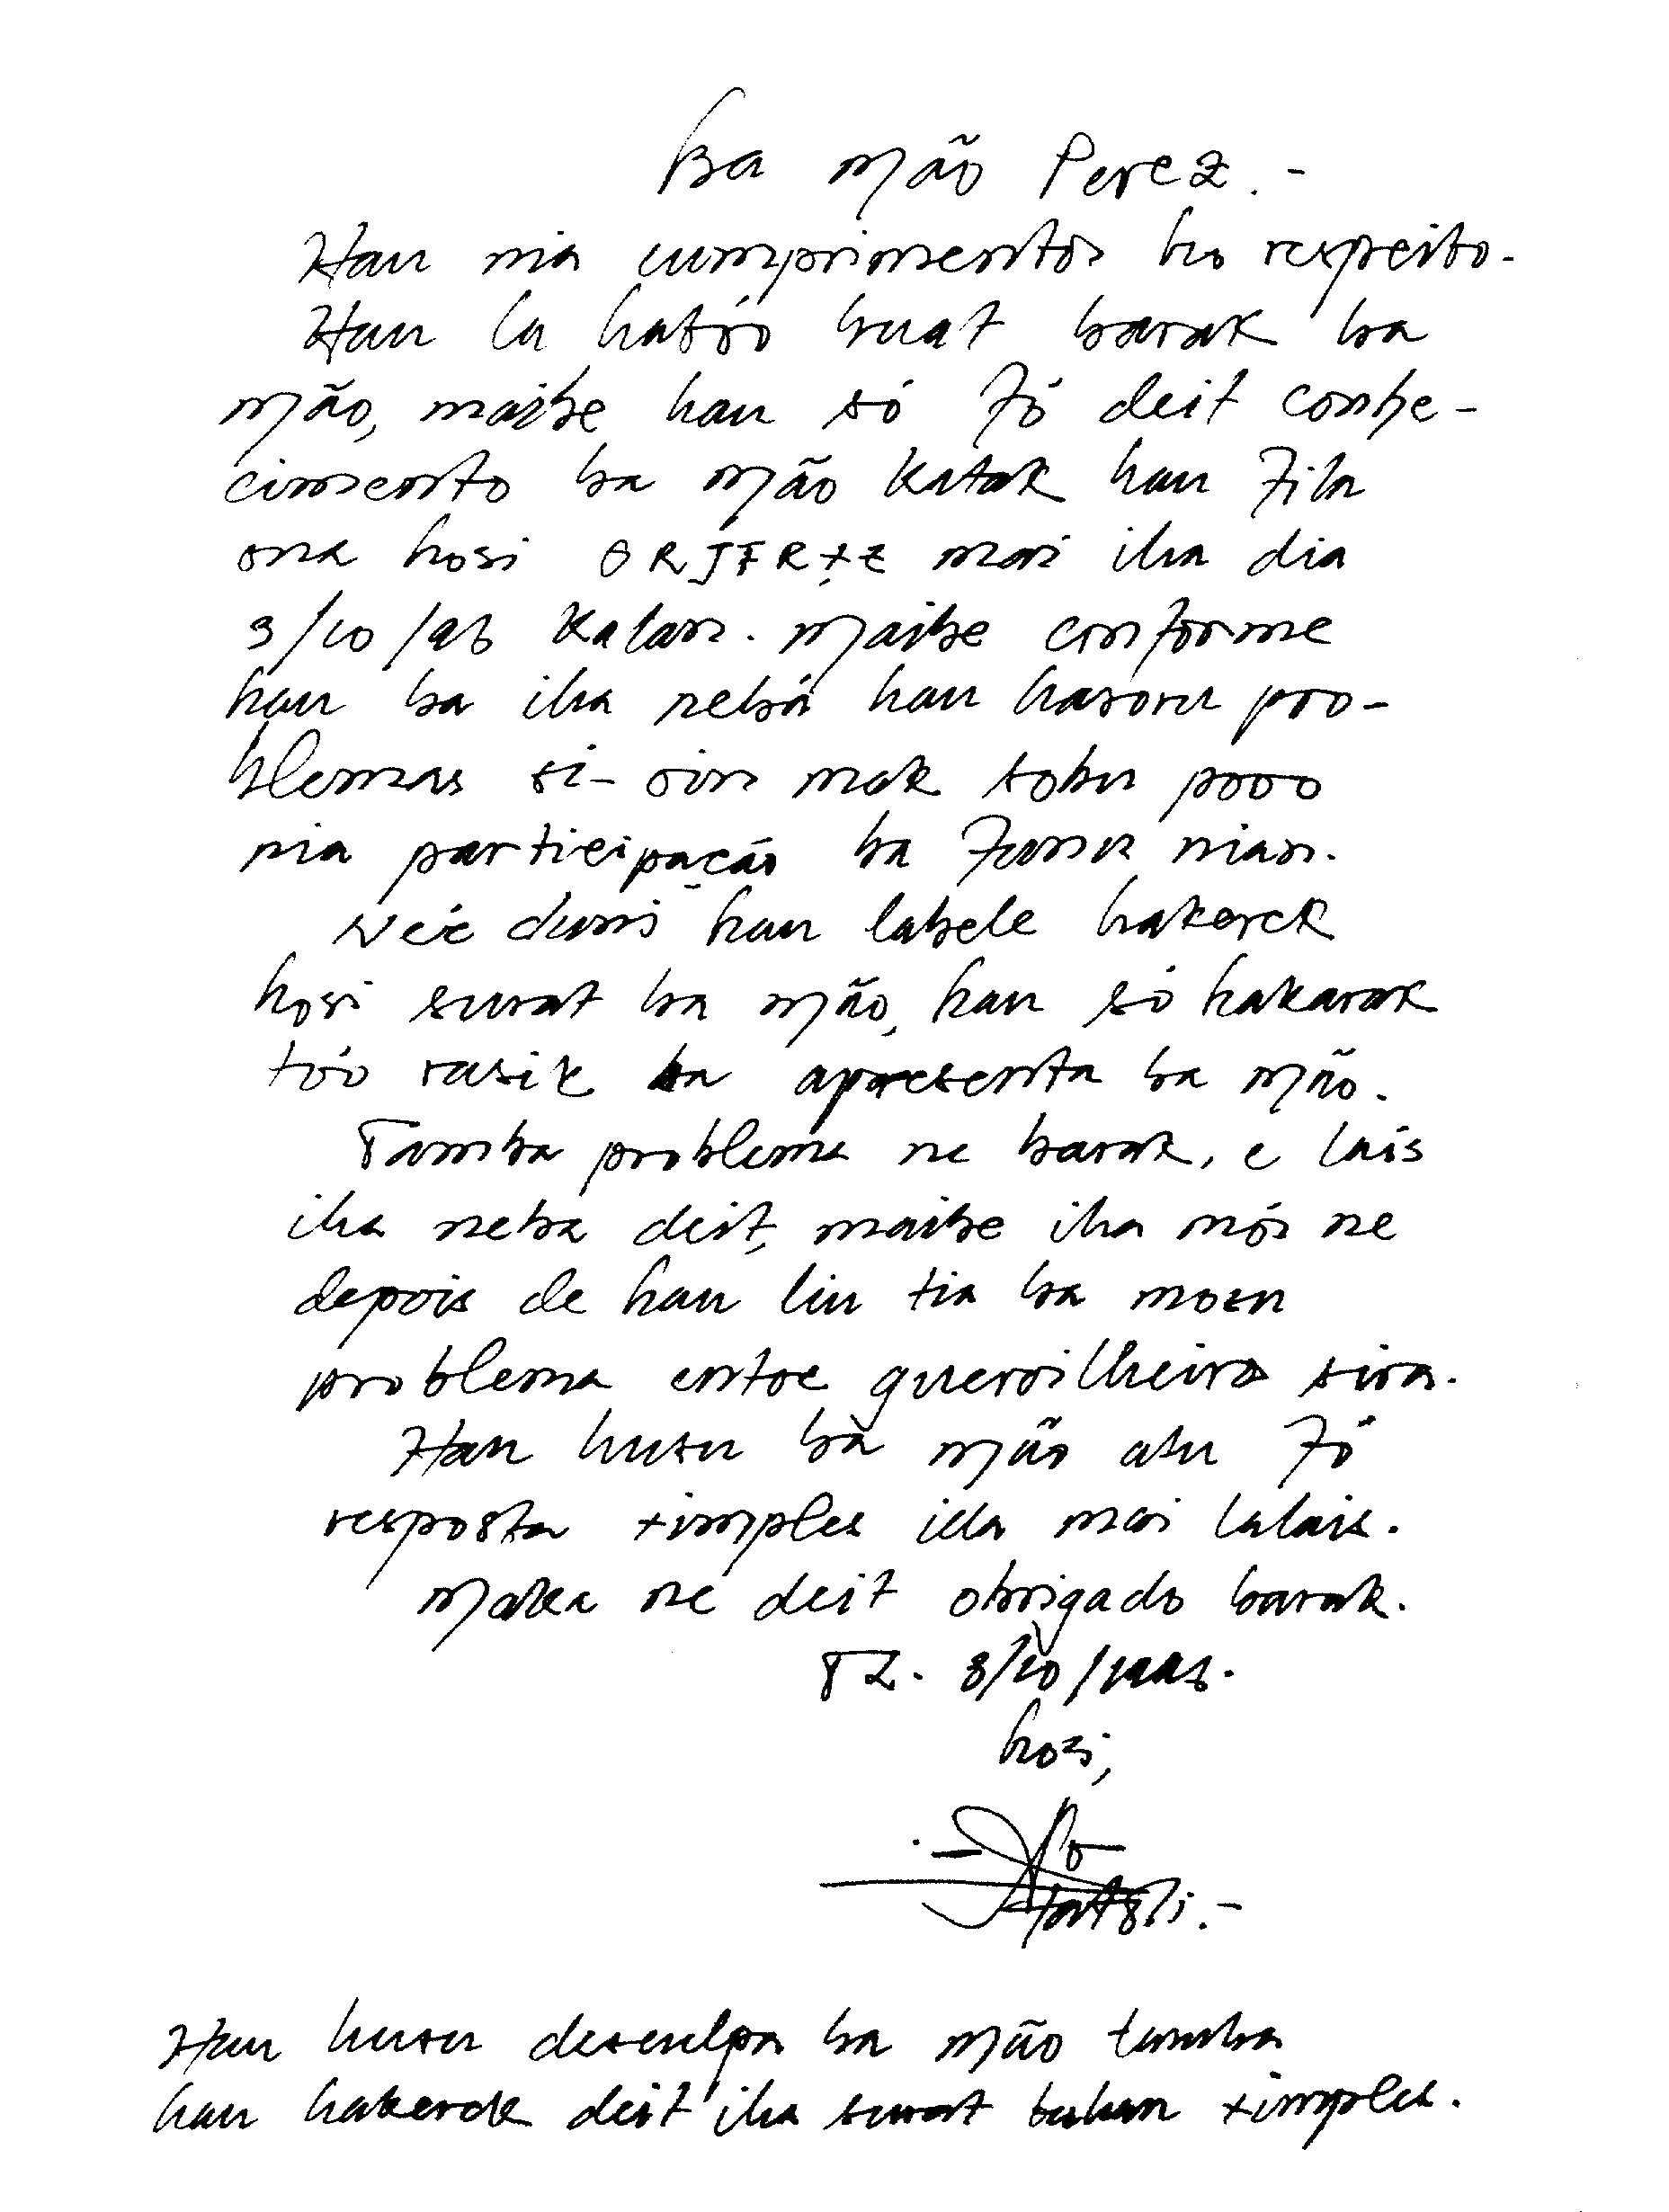 Ba mão Perez.-
Hau nia cumprimentos ho respeito.
Hau la hatóo buat barak ba
mão, maibe hau só fó deit conhe-
cimento ba mão katak hau fila
ona hosi mai iha dia
3/10/96 kalan. Maibe conforme
hau ba iha nebá hau hasoru pro-
blemas si-sin mak sobu povo
nia participação ba Funu nian.
Neé duni hau labele hakerek
hosi surat ba mão, hau só hakarak
tóo rasik ba apresenta ba mão.
Tamba problema ne barak, e laís
iha neba deit, maibe iha mós ne
depois de hau liu tia ba mosu
problema entre guerrilheiro sira.
Hau husu ba mão atu fó
resposta ximples ida mai lalais.
Maka ne deit obrigado barak.
TL. 8/10/1996.
hosi,
Hau husu desculpa ba mão tamba
hau hakerek deit iha surat tahan ximples.